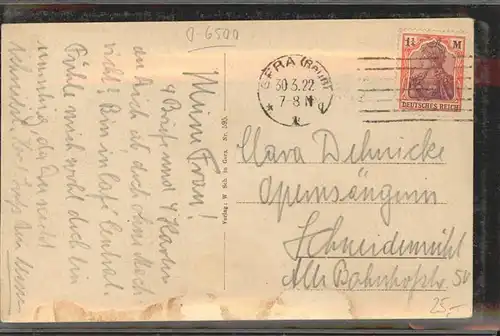 0-6500
GERA (REUß)
30.3.22
7-8 N
1¼ M
DEUTSCHES REICH
Meine Frau!
4 Briefe und 4 Karten
an Dich ist, doch ohne
nicht? Bin im Café Central.
Fühle mich wohl doch bin
unruhig, da Du nicht
schreibst.
Verlag: H. Sch. in Gera. Nr.
Clara Dehnicke
Opernsängerin
Schneidemühl
Alte Bahnhofstr. 50
25,-